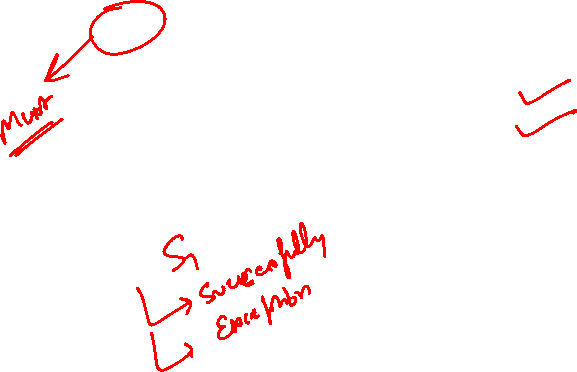 Must
S1
Successfully
Exception